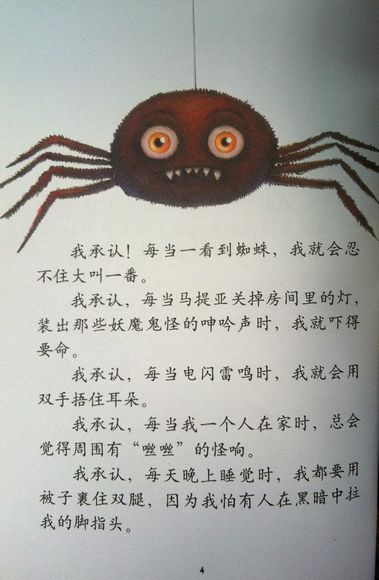 我承认！每当一看到蜘蛛，我就会忍
不住大叫一番。
我承认，每当马提亚关掉房间里的灯，
装出那些妖魔鬼怪的呻吟声时，我就吓得
要命。
我承认，每当电闪雷鸣时，我就会用
双手捂住耳朵。
我承认，每当我一个人在家时，总会
觉得周围有“咝咝”的怪响。
我承认，每天晚上睡觉时，我都要用
被子裹住双腿，因为我怕有人在黑暗中拉
我的脚指头。
4